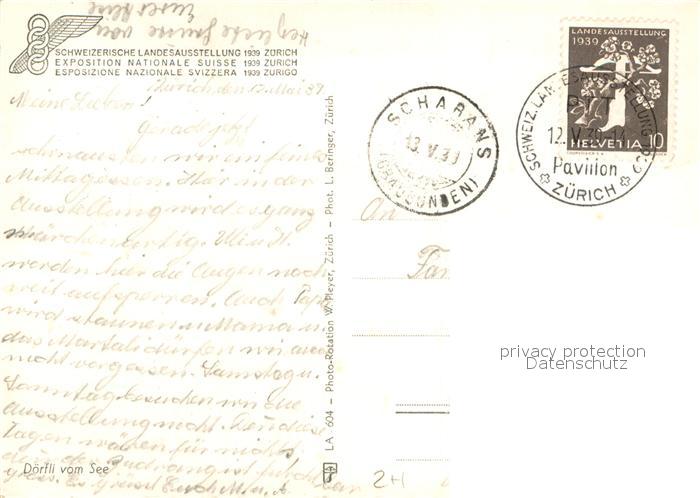 Herzliche Grüsse von
SCHWEIZERISCHE LANDESAUSSTELLUNG 1939 ZÜRICH
EXPOSITION NATIONALE SUISSE 1939 ZURICH
ESPOSIZIONE NAZIONALE SVIZZERA 1939 ZURIGO
Zürich, den 12. Mai 39
Meine Lieben!
Gerade jetzt
wir ein feines
Mittagessen. Hier in der
Ausstellung wird es ganz
märchenartig. Ueli u. H.
werden hier die Augen noch
weit aufsperren. Auch Papa
wird staunen u. Mama u.
das Martali dürfen wir auch
nicht vergessen. Samstag u.
Sonntag besuchen wir die
Ausstellung nicht. Denn diese
Tagen wären für nichts,
da der Andrang ist furchtbar
gross. Es grüsst Euch M. u. A.
Dörfli vom See
LA 604 – Photo-Rotation W. Pleyer, Zürich – Phot. L. Beringer, Zürich
SCHARANS
13.V.39
(GRAUBÜNDEN)
LANDESAUSSTELLUNG
1939
HELVETIA 10
SCHWEIZ. LANDESAUSSTELLUNG 1939
PTT
12.V.39-14
Pavillon
ZÜRICH
An
Fam
privacy protection
Datenschutz
2+1